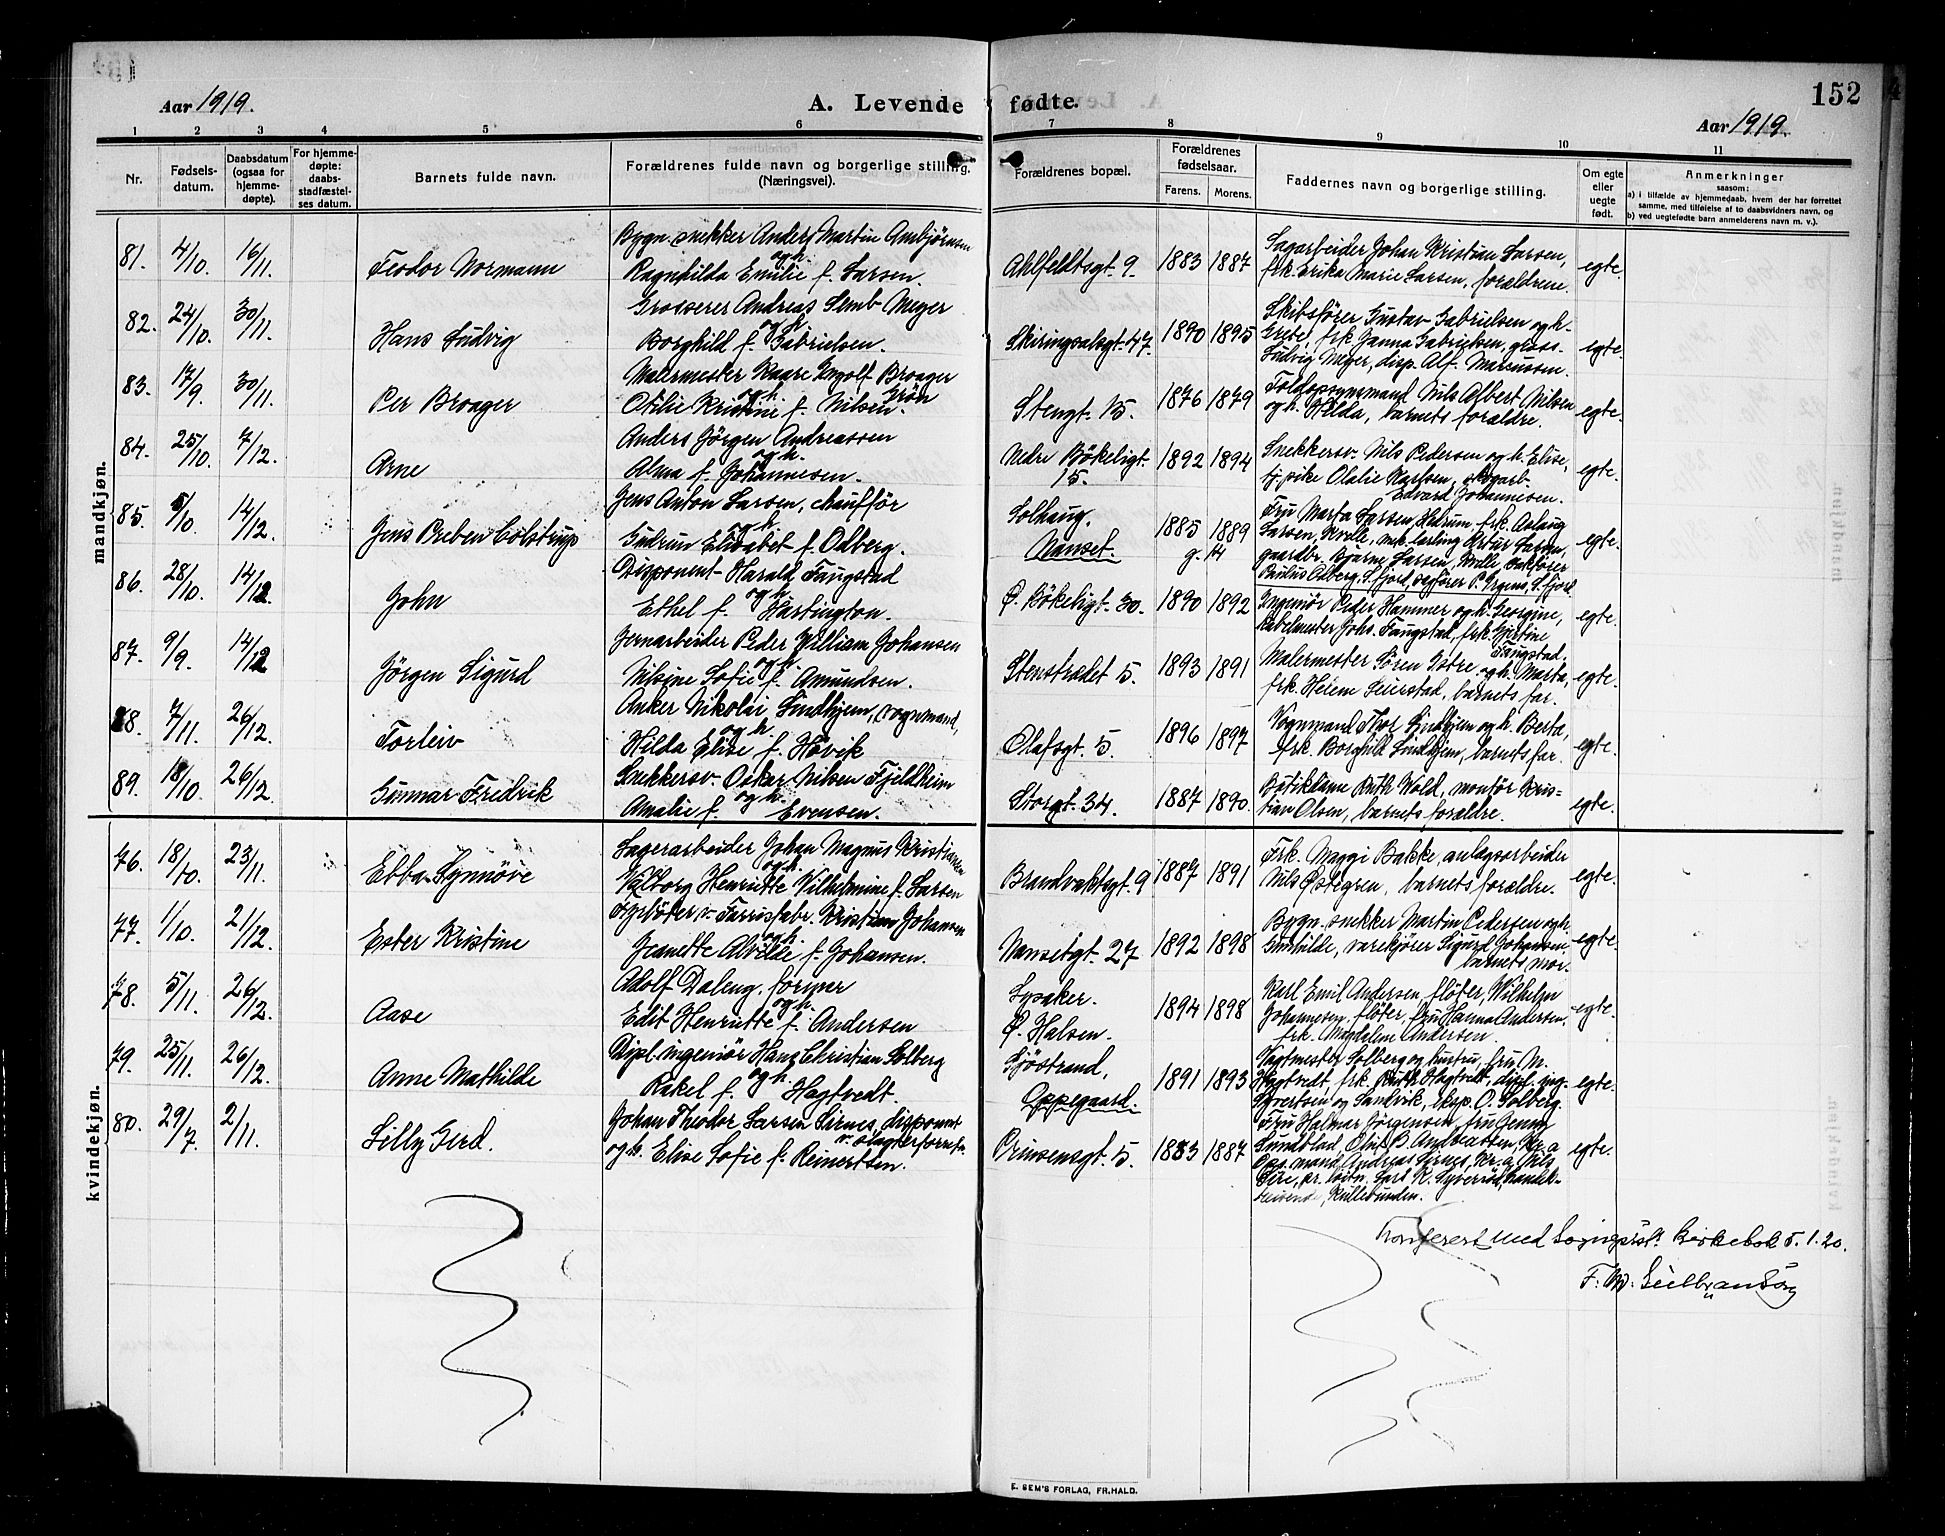 152
Aar 1919.
A. Levende fødte.
Aar 1919.
1 2 3 4 5 6 7 8 9 10 11
Nr.
Fødsels-
datum.
Daabsdatum
(ogsaa for
hjemme-
døpte).
For hjemme-
døpte:
daabs-
stadfæstel-
ses datum.
Barnets fulde navn.
Forældrenes fulde navn og borgerlige stilling.
(Næringsvei).
Forældrenes bopæl.
Forældrenes
fødselsaar.
Farens. Morens.
Faddernes navn og borgerlige stilling.
Om egte
eller
uegte
født.
Anmerkninger
saasom:
a) i tilfælde av hjemmedaab, hvem der har forrettet
samme, med tilføielse af to daabsvidners navn, og
b) ved uegtefødte barn anmelderens navn m. v.).
mandkjøn.
81. 4/10. 16/11. Teodor Normann
Bygn. snekker Anders Martin Ambjörnsen
og h.
Ragnhilda Emilie f. Larsen.
Ahlfeldtsgt. 9. 1883 1887
Sagarbeider Johan Kristian Larsen,
frk. Erika Marie Larsen, forældrene.
egte.
82. 24/10. 30/11. Hans Ludvig
Grosserer Andreas Semb Meyer
og h.
Borghild f. Gabrielsen.
Skiringsalsgt. 47. 1890 1895
Skibsfører Gustav Gabrielsen og h.
Grete, frk. Janna Gabrielsen, gross.
Ludvig Meyer, disp. Alf. Marcussen.
egte.
83. 17/9. 30/11. Per Broager
Malermester Kaare Ingolf Broager
og h. Grön
Otilie Kristine f. Nilsen.
Stengt. 15. 1876 1879
Toldopsynsmand Nils Albert Nilsen
og h. Hilda, barnets forældre.
egte.
84. 25/10. 7/12. Arne
Anders Jörgen Andreassen
og h.
Alma f. Johannesen.
Nedre Bökeligt.
15.
1892 1894
Snekkersv. Nils Pedersen og h. Elise,
tj. pike Olalie Karlsen, skogarb.
Edvard Johannesen.
egte.
85. 5/10. 14/12. Jens Preben Colstrup
Jens Anton Larsen, chaufför
og h.
Gudrun Elisabet f. Odberg.
Solhaug,
Nanset.
1885 1889
Fru Marta Larsen, Hedrum, frk. Aslaug
Larsen, Kvelle, mek. lærling Artur Larsen,
gaardbr. Bjarne Larsen, Kvelle, bakfører
Paulus Odberg, S.fjord, vegfører P. Irgens, S.fjord
egte.
86. 28/10. 14/12. John
Disponent Harald Faugstad
og h.
Ethel f. Hartington.
Ø. Bökeligt. 30. 1890 1892
Ingeniør Peder Hammer og h. Georgine,
kabelmester Johs. Faugstad, frk. Gjertine
Faugstad.
egte.
87. 9/9. 14/12 Jörgen Sigurd
Jernarbeider Peder William Johansen
og h.
Nilsine Sofie f. Amundsen.
Stenstrædet 5. 1893 1891
Malermester Sören Istre og h. Marta,
frk. Helem Seierstad, barnets far.
egte.
88. 7/11. 26/12. Torleiv
Anker Nikolai Lindhjem, vognmand,
og h.
Hilda Elise f. Hövik
Olafsgt. 5. 1896 1897
Vognmand Thor Lindhjem og h. Berta,
frk. Borghild Lindhjem, barnets far.
egte.
89. 18/10. 26/12. Gunnar Fredrik
Snekkersv. Oskar Nilsen Fjeldheim
og h.
Amalie f. Evensen.
Storgt. 34. 1887 1890.
Butikdame Ruth Wold, montör Kris-
tian Olsen, barnets forældre.
egte.
kvindekjøn.
76. 18/10. 23/11. Ebba Synnöve
Lagerarbeider Johan Magnus Kristiansen
og h.
Valborg Henriette Vilhelmine f. Larsen
Brandvaktsgt. 9 1887 1891
Frk. Maggi Bakke, anlagsarbeider
Nils Østegren, barnets forældre.
egte.
77. 1/10. 21/12. Ester Kristine
Fyrböter v. Farrisfabr. Kristian Johansen
og h.
Jeanette Alvilde f. Johansen.
Nansetgt. 27 1892 1898
Bygn. snekker Martin Pedersen og h.
Gunhilde, varekjører Sigurd Johansen,
barnets mor.
egte.
78. 5/11. 26/12. Aase
Adolf Daleng, formar
og h.
Edit Henriette f. Andersen
Lysaker.
Ø. Halsen.
1894 1898
Karl Emil Andersen, fløter, Wilhelm
Johannesen, fløter, fru Hanna Andersen.
frk. Magdalene Andersen.
egte.
79. 25/11. 26/12. Anne Mathilde
Dipl. ingeniör Hans Christian Solberg
og h.
Rakel f. Hagtvedt.
Sjöstrand,
Oppegaard.
1891 1893
Vagtmester Solberg og hustru, fru M.
Hagtvedt, frk. Ruth Hagtvedt, dipl. ing.
Syvertsen og Sandvik, eksp. O. Solberg.
egte.
80. 29/7. 2/11. Lilly Gerd.
Johan Theodor Larsen Sirnes, disponent
v. slagterforretn.
og h. Elise Sofie f. Reinertsen.
Prinsensgt. 5. 1883 1887
Fru Halmar Jörgensen, fru Jenny
Lundblad, Oluf B. Andreassen, Kr.a
Ops. mand Andreas Sirnes, Kr.a, Nils
Sire, pr. løitn. Lars K. Syverröd, handels-
reisende, Kullebunden.
egte.
Konferert med Sogneprst. Kirkebok 5.1.20.
F. W. Gulbranson
E. SEM'S FORLAG, FR.HALD.